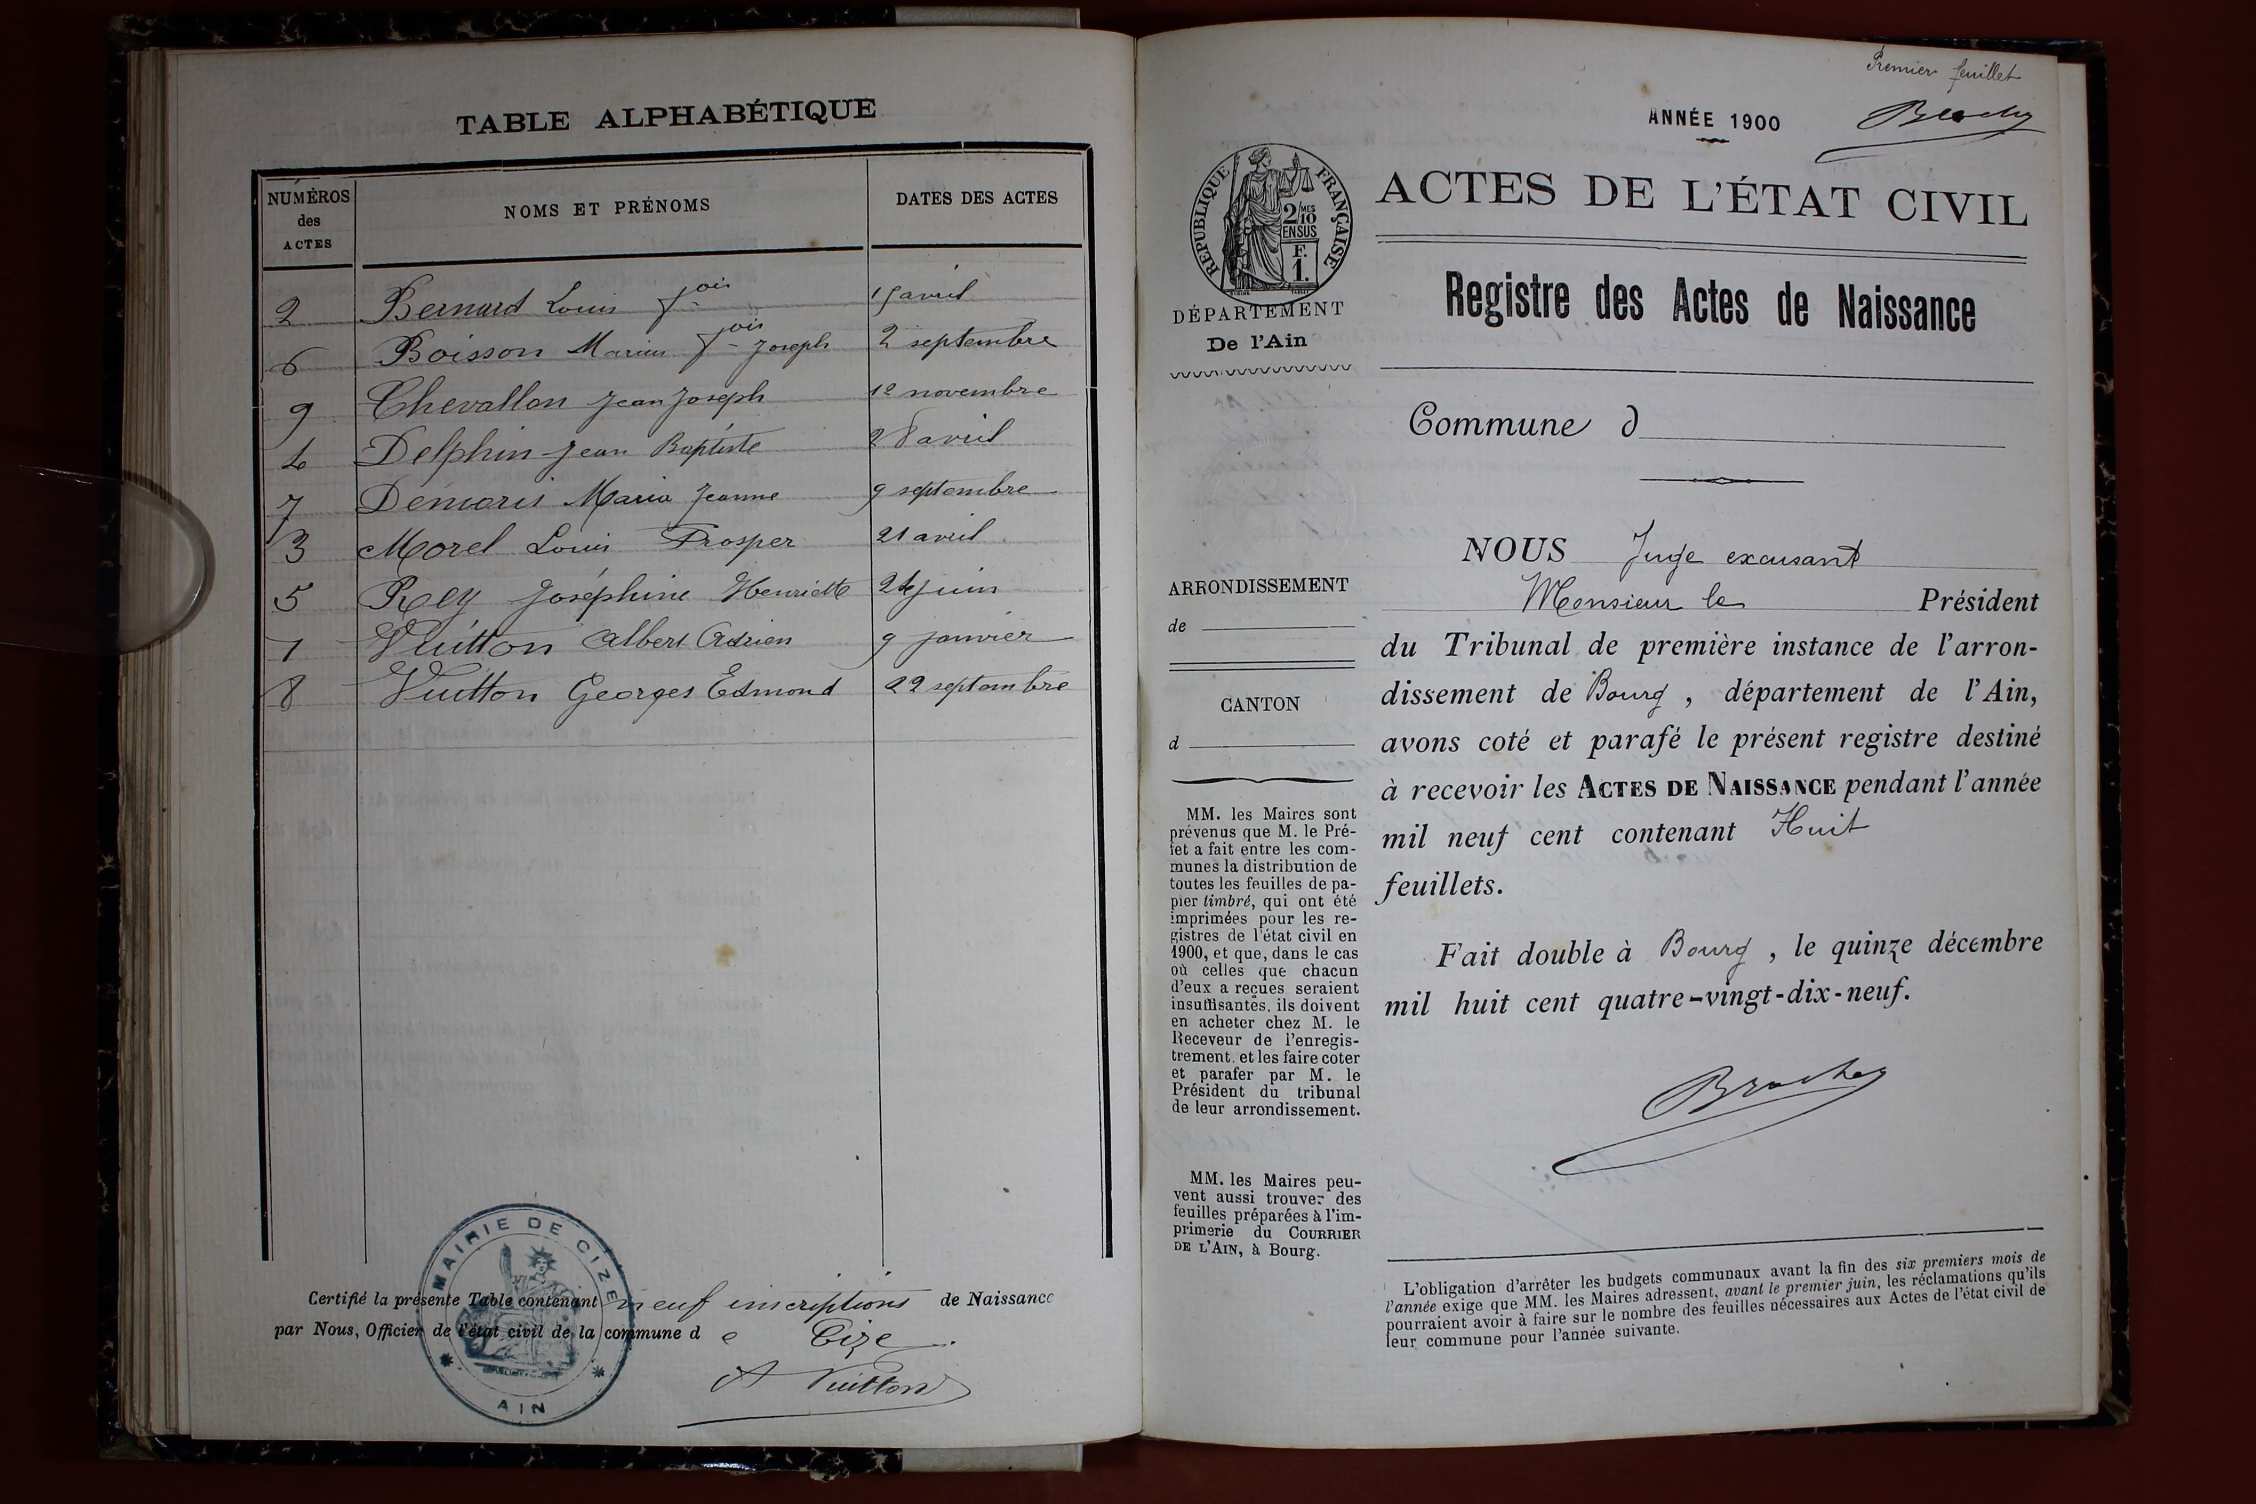 TABLE ALPHABÉTIQUE
NUMÉROS des ACTES
NOMS ET PRÉNOMS
DATES DES ACTES
2 Bernard Louis fois 15 avril
6 Boisson Marius fois Joseph 2 septembre
9 Chevallon Jean Joseph 12 novembre
4 Delphin Jean Baptiste 28 avril
7 Démaris Maria Jeanne 9 septembre
3 Morel Louis Prosper 21 avril
5 Rey Joséphine Henriette 24 juin
1 Vuitton Albert Adrien 9 janvier
8 Vuitton Georges Edmond 22 septembre
MAIRIE DE CIZE
AIN
Certifié la présente Table contenant neuf inscriptions de Naissance
par Nous, Officier de l'état civil de la commune de Cize
A Vuitton
Premier feuillet
ANNÉE 1900
RÉPUBLIQUE FRANÇAISE
2/10 MES
EN SUS
F.
1.
DÉPARTEMENT
De l'Ain
ACTES DE L'ÉTAT CIVIL
Registre des Actes de Naissance
Commune d
ARRONDISSEMENT
de
CANTON
d
MM. les Maires sont
prévenus que M. le Pré-
fet a fait entre les com-
munes la distribution de
toutes les feuilles de pa-
pier timbré, qui ont été
imprimées pour les re-
gistres de l'état civil en
1900, et que, dans le cas
où celles que chacun
d'eux a reçues seraient
insuffisantes, ils doivent
en acheter chez M. le
Receveur de l'enregis-
trement, et les faire coter
et parafer par M. le
Président du tribunal
de leur arrondissement.
MM. les Maires peu-
vent aussi trouver des
feuilles préparées à l'im-
primerie du COURRIER
DE L'AIN, à Bourg.
NOUS Juge excusant
Monsieur le Président
du Tribunal de première instance de l'arron-
dissement de Bourg, département de l'Ain,
avons coté et parafé le présent registre destiné
à recevoir les ACTES DE NAISSANCE pendant l'année
mil neuf cent contenant Huit
feuillets.
Fait double à Bourg, le quinze décembre
mil huit cent quatre-vingt-dix-neuf.
L'obligation d'arrêter les budgets communaux avant la fin des six premiers mois de
l'année exige que MM. les Maires adressent, avant le premier juin, les réclamations qu'ils
pourraient avoir à faire sur le nombre des feuilles nécessaires aux Actes de l'état civil de
leur commune pour l'année suivante.